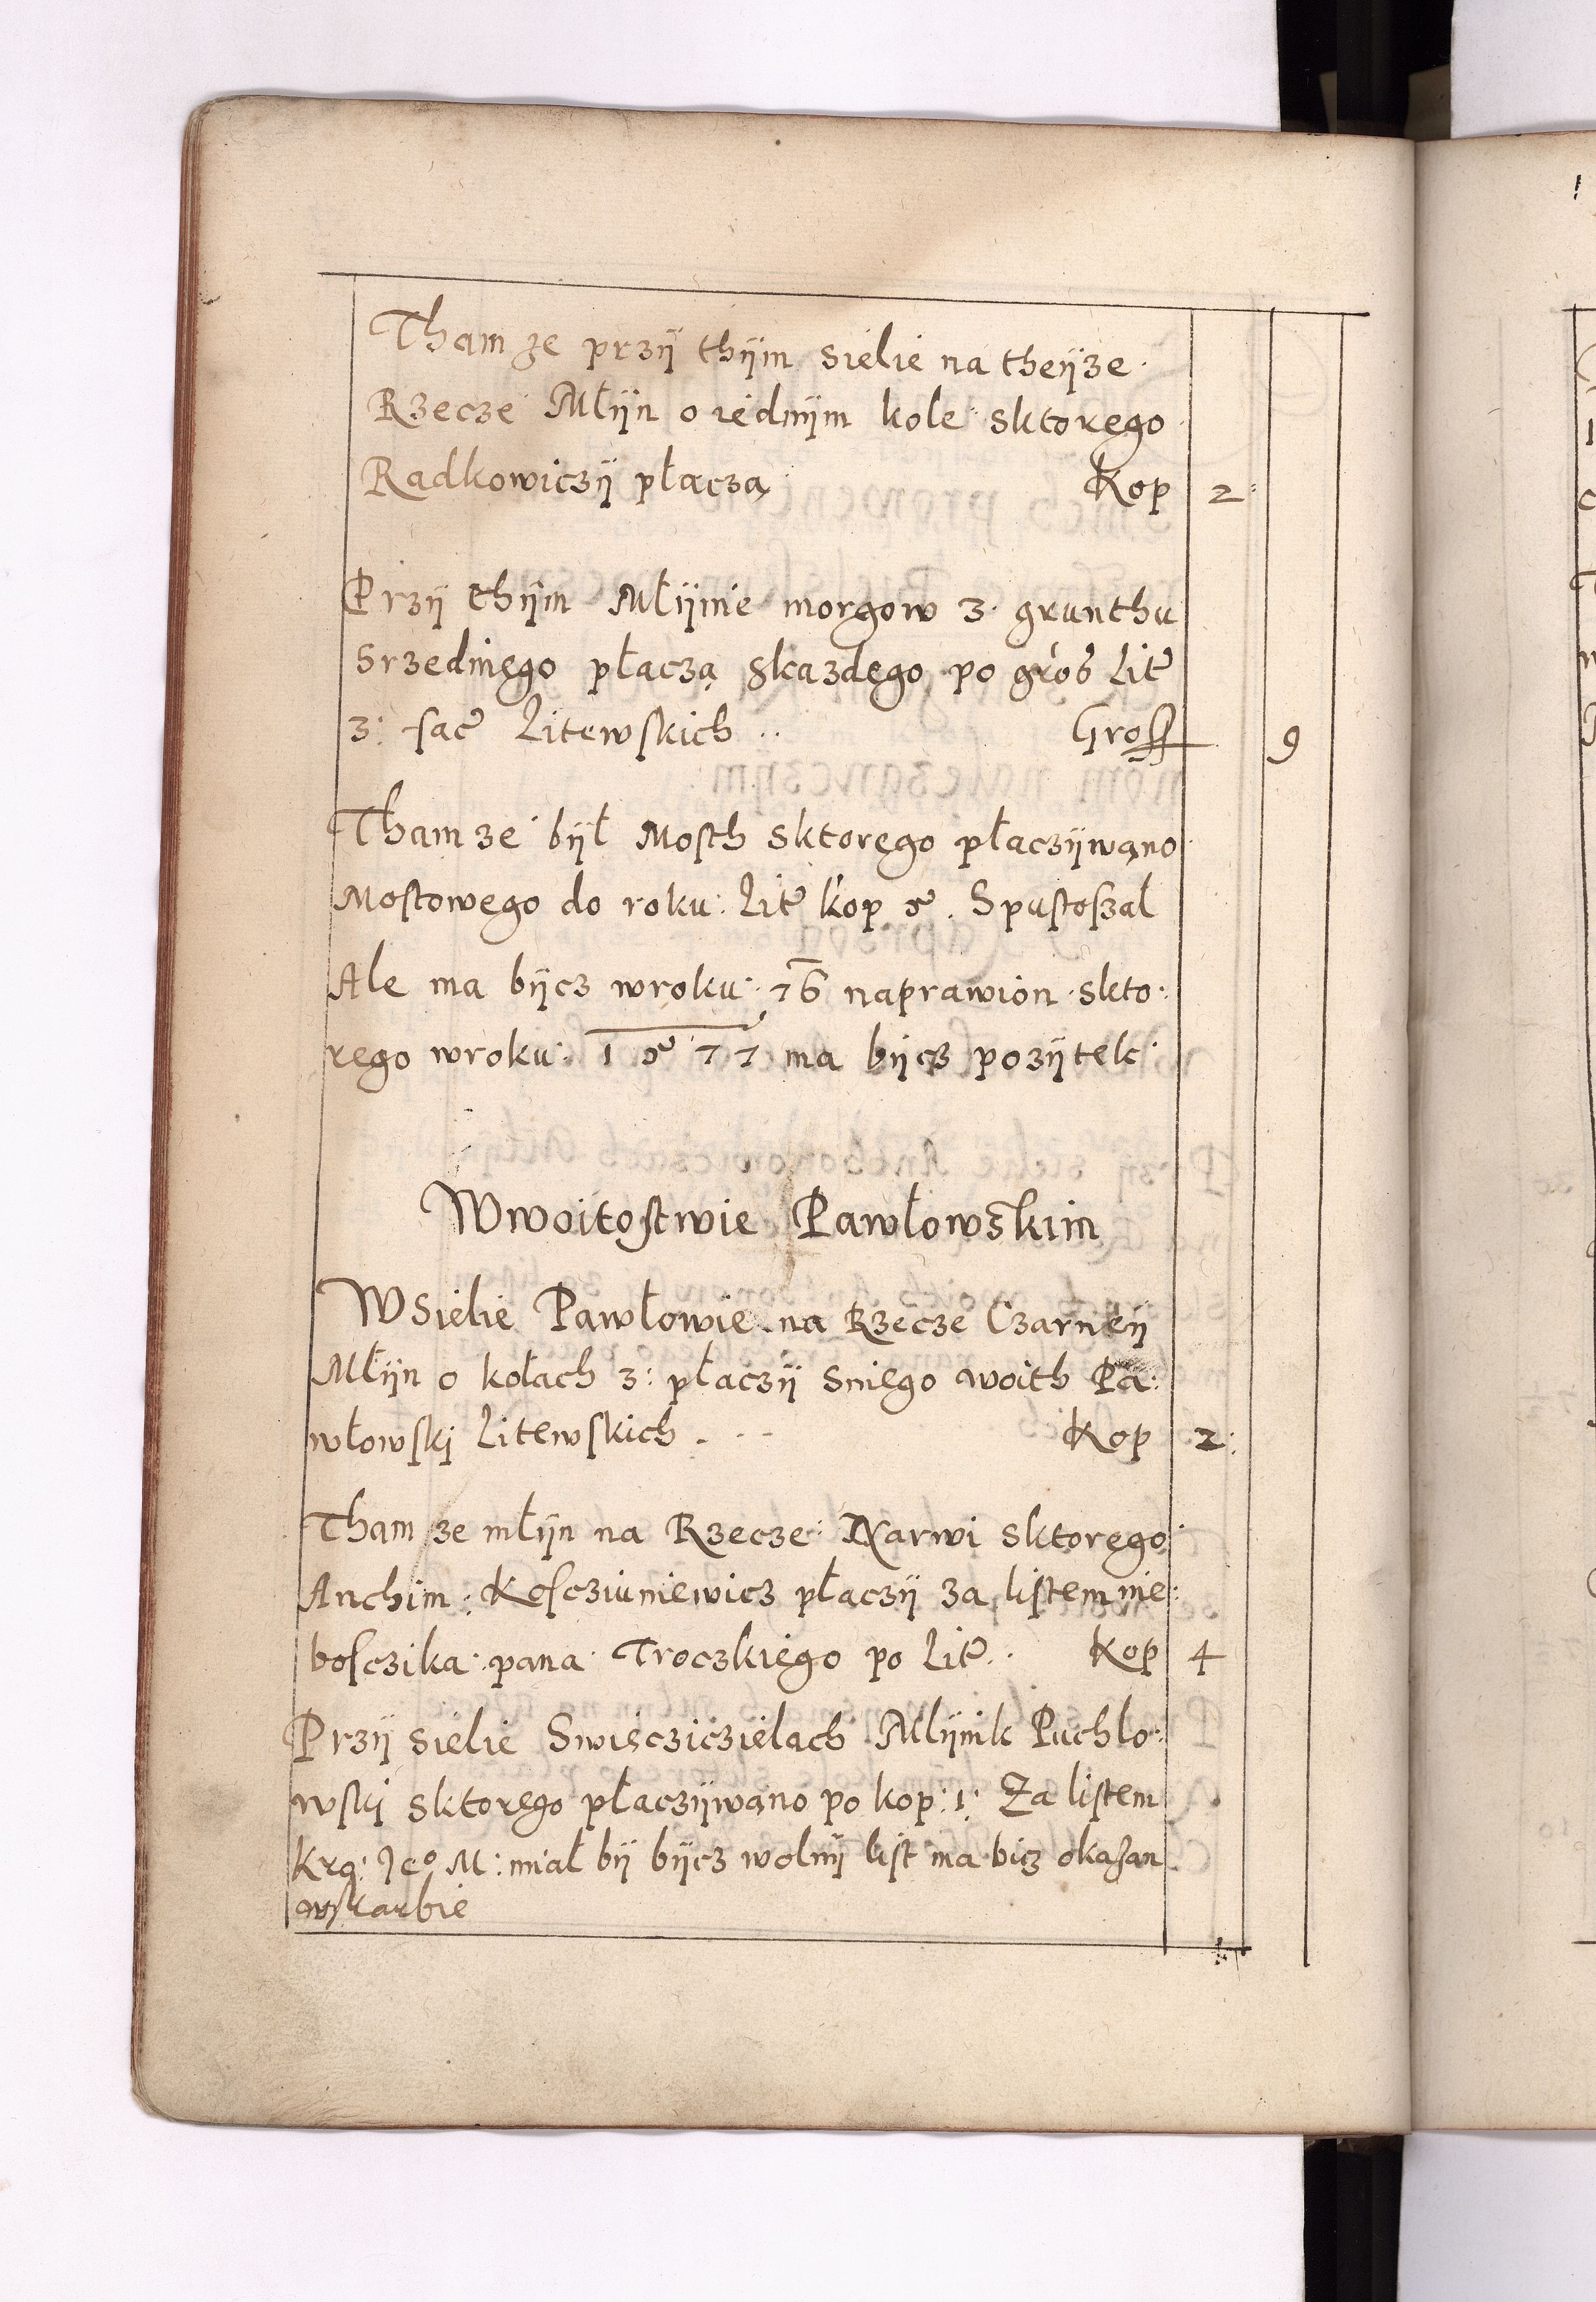 Tham ze przÿ thÿm sielie na theÿze
Rzecze Młÿn o iednÿm kole sktorego
Radkowiczÿ płaczą Kop 2
Przÿ thÿm Młÿnie morgow 3 grunthu
Srzedniego płaczą skazdego po gros Lit
3: fac Litewskich Gross 9
Tham ze bÿł Mosth sktorego płaczÿwano
Mostowego do roku: Lit kop 5. Spustoszal
Ale ma bÿcz wroku: 76 naprawion skto:
rego wroku: 1577 ma bÿcz pozÿtek
Wwoitostwie Pawłowskim
WSielie Pawłowie na Rzecze Czarneÿ
Młÿn o kołach 3: płaczÿ sniego woith Pa:
włowski Litewskich Kop 2:
Tham ze młÿn na Rzecze: Narwi sktorego
Anchim: Koscziuniewicz płaczÿ za listem nie:
bosczika pana Troczkiego po Lit Kop 4
Przÿ sielie Swięcziczielach Mlÿnik Puchlo:
wski sktorego płaczÿwano po kop: 1: Za listem
Kra: Je° M: miał bÿ bÿcz wolnÿ list ma bicz okazan
wskarbie